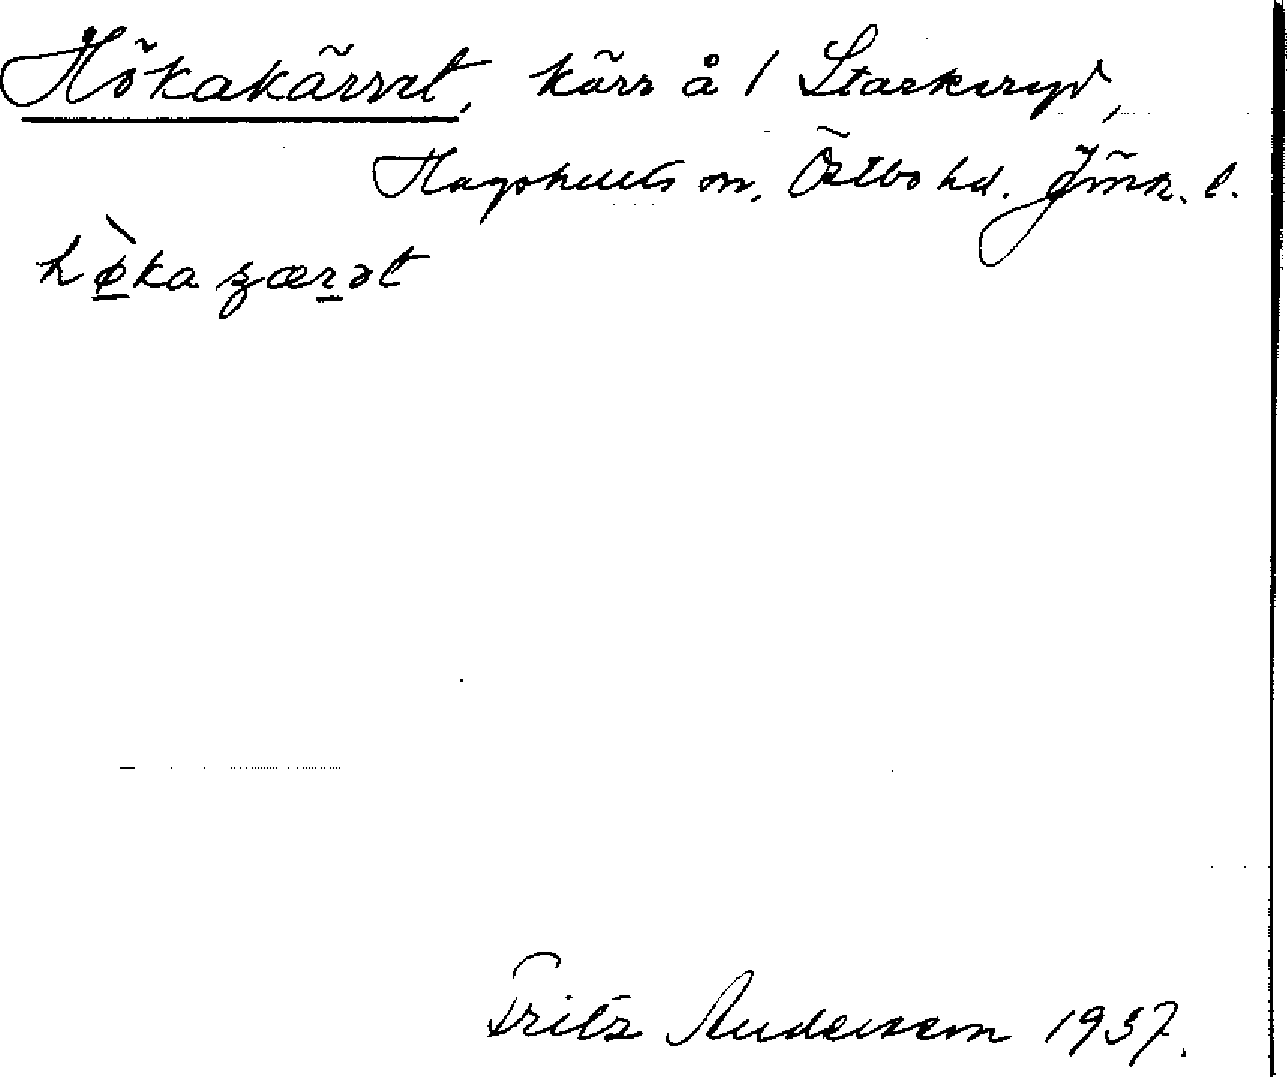 Hökakärret, kärr å 1 Starkeryd,
Hagshults sn, Östbo hd. Jönk. l.
hø̀ka ʒærət
Fritz Andersson 1937.